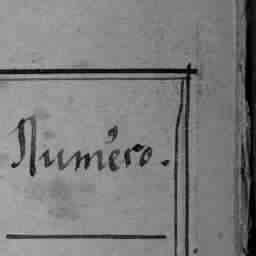 Numéro.